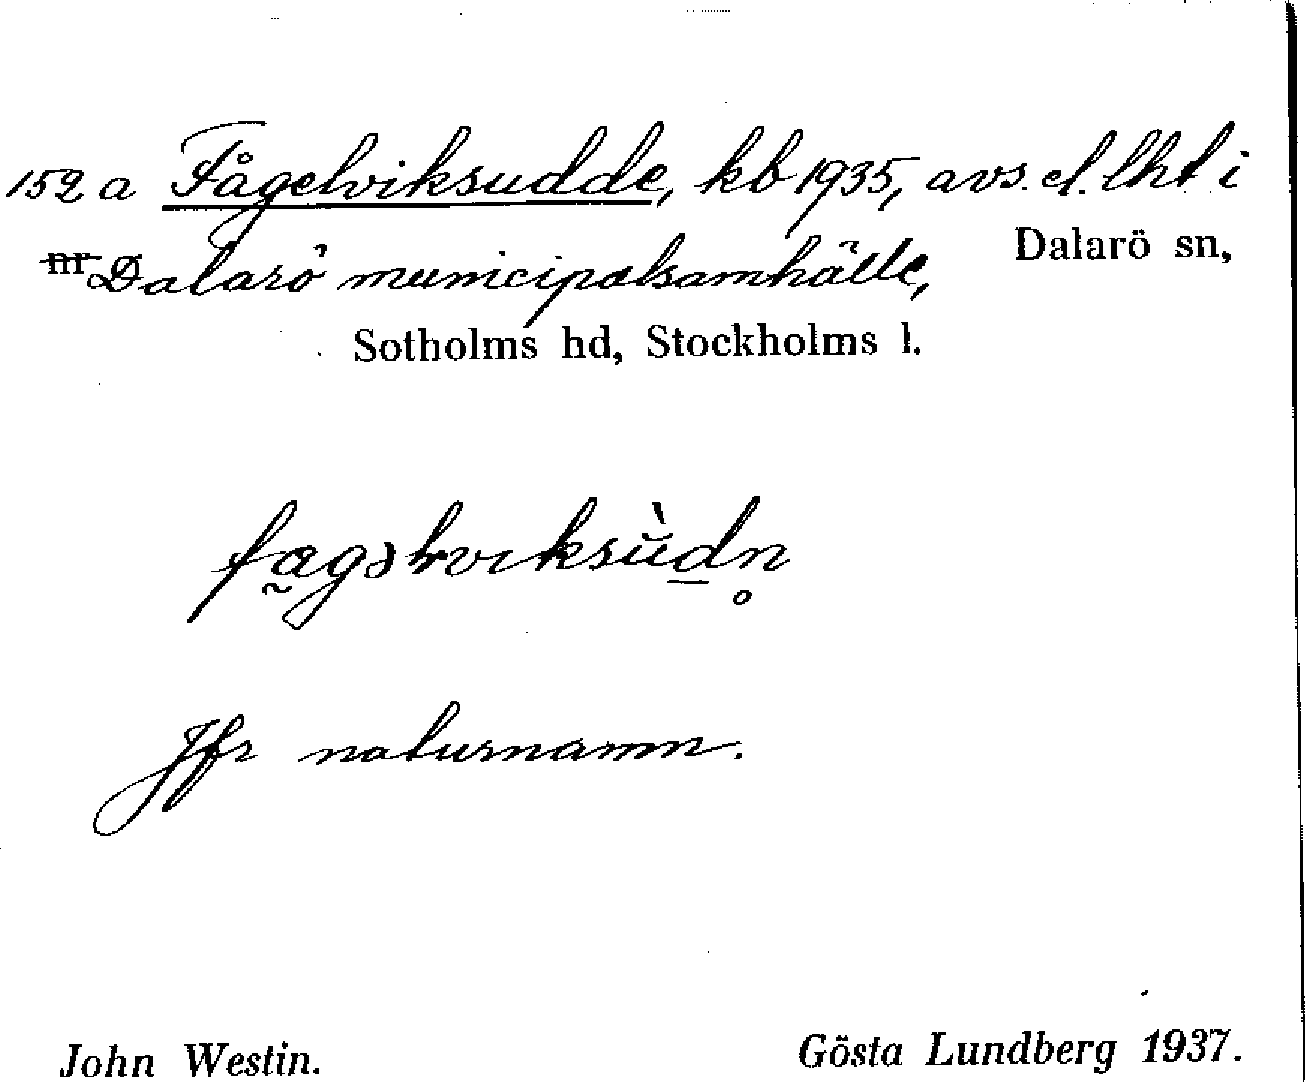 152 a Fågelviksudde, kb 1935, avs. el. lht i
nr Dalarö municipalsamhälle, Dalarö sn,
Sotholms hd, Stockholms l.
Jfr naturnamn.
John Westin. Gösta Lundberg 1937.